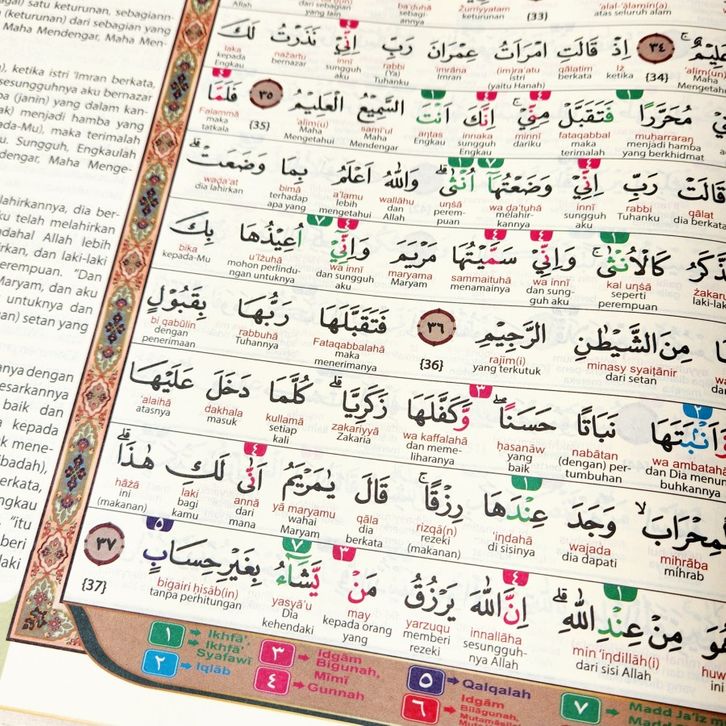 (agai) satu keturunan, sebagiann-
(keturunan) dari sebagian yang
Maha Mendengar, Maha Men-
ketika istri 'Imran berkata,
sesungguhnya aku bernazar
(janin) yang dalam kan-
menjadi hamba yang
da-Mu), maka terimalah
Sungguh, Engkaulah
dengar, Maha Menge-
lahirkannya, dia ber-
ku telah melahirkan
padahal Allah lebih
irkan, dan laki-laki
perempuan. "Dan
Maryam, dan aku
untuknya dan
setan yang
anya dengan
esarkannya
baik dan
a kepada
mene-
ibadah),
erkata,
ngkau
"itu
beri
laki
yang lain sebagi-annya (keturunan) {33} atas seluruh alam
Allah ba'duhā Żurriyyatam 'alal-'ālamīn(a)
٣٤ إِذْ قَالَتِ امْرَاَتُ عِمْرَانَ رَبِّ اِنِّيْ نَذَرْتُ لَكَ
{34} Iż qālatim imra'atu 'imrāna rabbi innī nażartu laka
ketika berkata istri (yaitu Hanah) Imran (Ya) Tuhanku sungguh aku bernazar kepada Engkau
مُحَرَّرًا فَتَقَبَّلْ مِنِّيْ ۚ اِنَّكَ اَنْتَ السَّمِيْعُ الْعَلِيْمُ ٣٥ فَلَمَّا
muḥarraran fataqabbal minnī innaka anta s-samī'ul 'alīm(u) {35} Falammā
menjadi hamba yang berkhidmat maka terimalah dariku sungguh Engkau Engkau Maha Mendengar Maha Mengetahui maka tatkala
قَالَتْ رَبِّ اِنِّيْ وَضَعْتُهَآ اُنْثٰىۗ وَاللّٰهُ اَعْلَمُ بِمَا وَضَعَتْۗ
qālat rabbi innī waḍa'tuhā unṡā wallāhu a'lamu bimā waḍa'at
dia berkata Tuhanku sungguh aku melahir-kannya perem-puan dan Allah lebih mengetahui terhadap apa yang dia lahirkan
الذَّكَرُ كَالْاُنْثٰىۚ وَاِنِّيْ سَمَّيْتُهَا مَرْيَمَ وَاِنِّيْٓ اُعِيْذُهَا بِكَ
żakaru kal unṡā wa innī sammaituhā maryama wa innī u'īżuhā bika
laki-laki seperti perempuan dan sung-guh aku menamainya Maryam dan sungguh aku mohon perlindu-ngan untuknya kepada-Mu
مِنَ الشَّيْطٰنِ الرَّجِيْمِ ٣٦ فَتَقَبَّلَهَا رَبُّهَا بِقَبُوْلٍ
minasy syaiṭānir rajīm(i) {36} Fataqabbalahā rabbuhā bi qabūlin
dari setan yang terkutuk maka menerimanya Tuhannya dengan penerimaan
وَّاَنْۢبَتَهَا نَبَاتًا حَسَنًاۖ وَّكَفَّلَهَا زَكَرِيَّاۗ كُلَّمَا دَخَلَ عَلَيْهَا
wa ambatahā nabātan ḥasanaw wa kaffalahā zakariyyā kullamā dakhala 'alaihā
dan Dia menum-buhkannya (dengan) per-tumbuhan yang baik dan meme-liharanya Zakaria setiap kali masuk atasnya
الْمِحْرَابَۙ وَجَدَ عِنْدَهَا رِزْقًاۚ قَالَ يٰمَرْيَمُ اَنّٰى لَكِ هٰذَاۗ
miḥrāba wajada 'indahā rizqā(n) qāla yā maryamu annā laki hāżā
mihrab dia dapati di sisinya rezeki (makanan) dia berkata wahai Maryam dari mana bagi kamu ini (makanan)
هُوَ مِنْ عِنْدِ اللّٰهِۗ اِنَّ اللّٰهَ يَرْزُقُ مَنْ يَّشَاۤءُ بِغَيْرِ حِسَابٍ ٣٧
huwa min 'indillāh(i) innallāha yarzuqu may yasyā'u bigairi ḥisāb(in) {37}
ini dari sisi Allah sesungguh-nya Allah memberi rezeki kepada orang yang Dia kehendaki tanpa perhitungan
١ Ikhfā', Ikhfā' Syafawī
٢ Iqlāb
٣ Idgām Bigunah, Mīmī
٤ Gunnah
٥ Qalqalah
٦ Idgām Bilāgunah,
٧ Madd Jā'iz